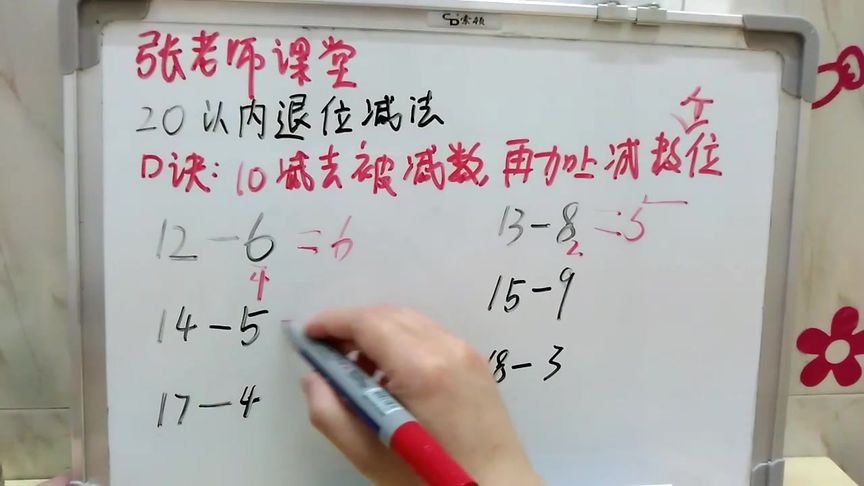 索顿
张老师课堂
20以内退位减法
个
口诀:10减去被减数,再加上减数位
12-6=6
4
13-8=5
2
14-5
15-9
17-4
18-3